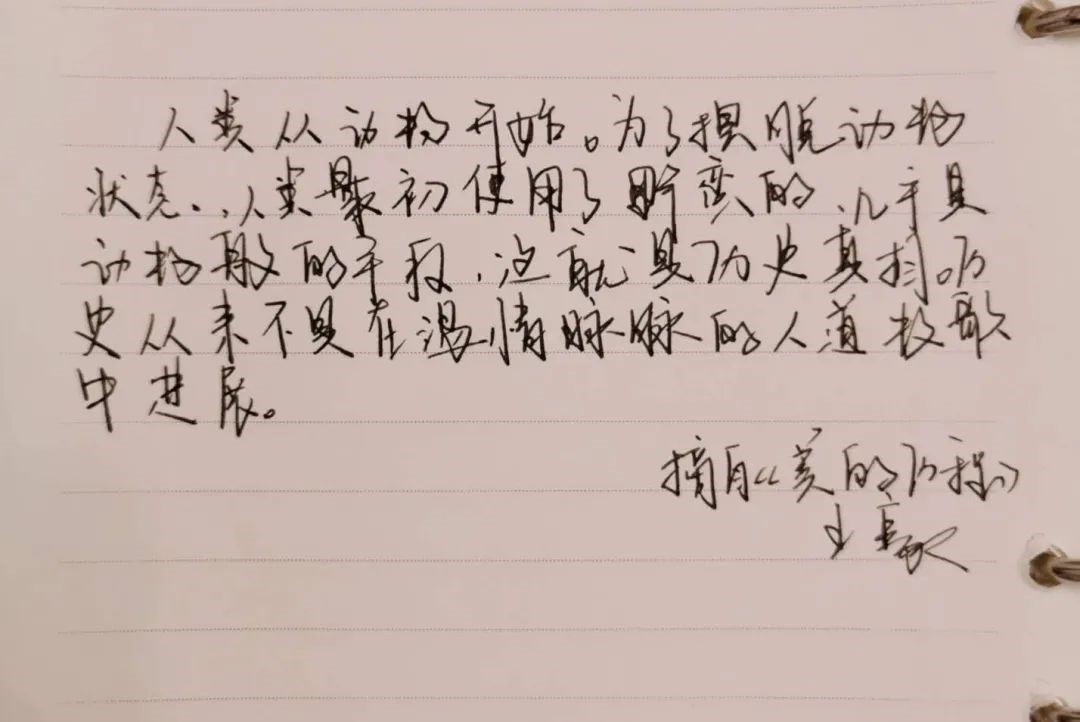 人类从动物开始。为了摆脱动物
状态，人类最初使用了野蛮的，几乎是
动物般的手段，这就是历史真相。历
史从来不是在温情脉脉的人道牧歌
中进展。
摘自《美的历程》